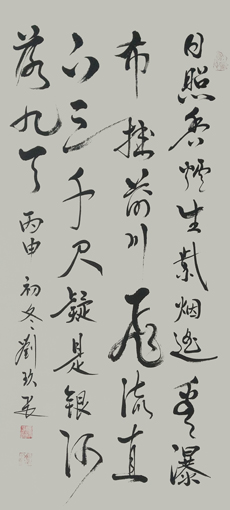 日照香炉生紫烟遥看瀑
布挂前川飞流直
下三千尺疑是银河
落九天 丙申初冬刘